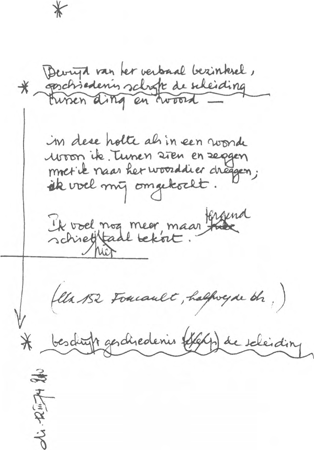 *
Bevrijd van het verbaal bezinksel,
* geschiedenis schrijft de scheiding
tussen ding en woord —
in deze holte als in een wonde
woon ik. Tussen zien en zeggen
moet ik naar het woorddier dreggen;
ik voel mij omgekocht.
Ik voel nog meer, maar tergend
schiet taal tekort.
152 Foucault, halfweg de blz.)
* beschrijft geschiedenis de scheiding
di. 12 III 74